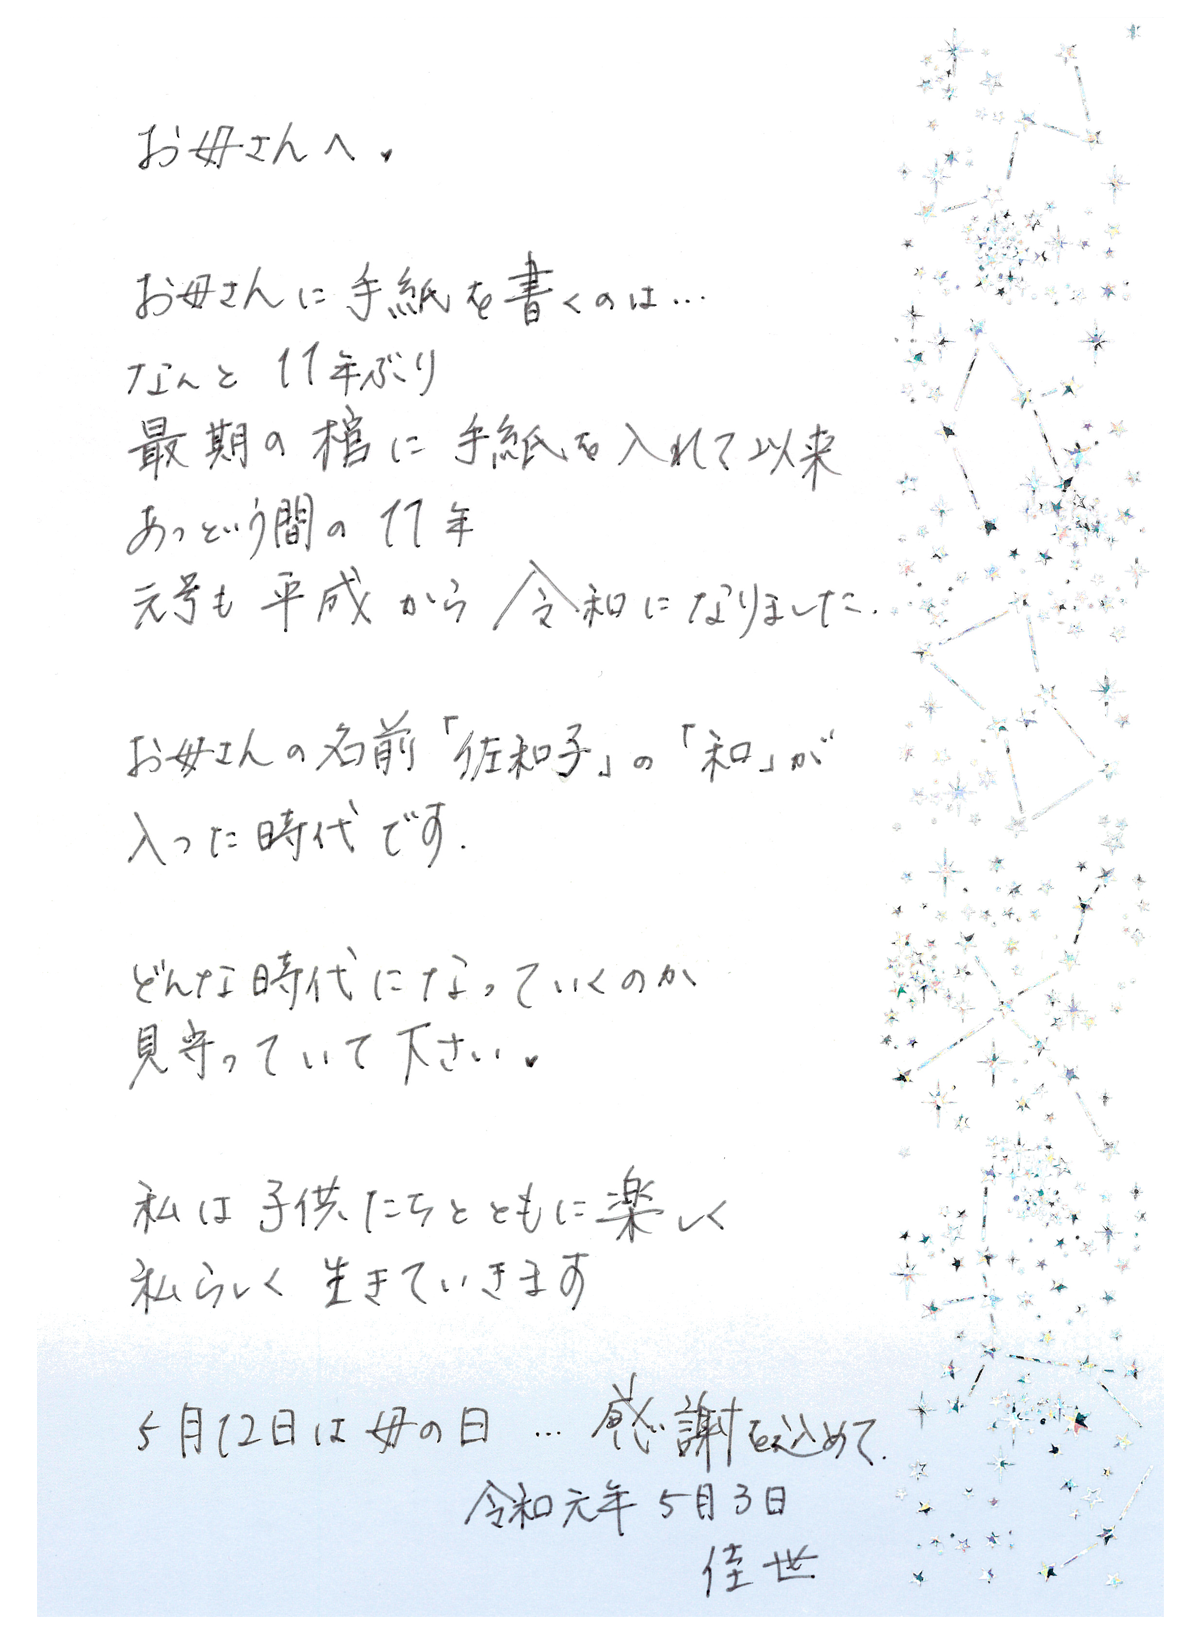 お母さんへ♥
お母さんに手紙を書くのは…
なんと 11年ぶり
最期の棺に手紙を入れて以来
あっという間の11年
元号も平成から令和になりました.
お母さんの名前「佐和子」の「和」が
入った時代です.
どんな時代になっていくのか
見守っていて下さい♥
私は子供たちとともに楽しく
私らしく生きていきます
5月12日は母の日…感謝を込めて.
令和元年5月3日
佳世